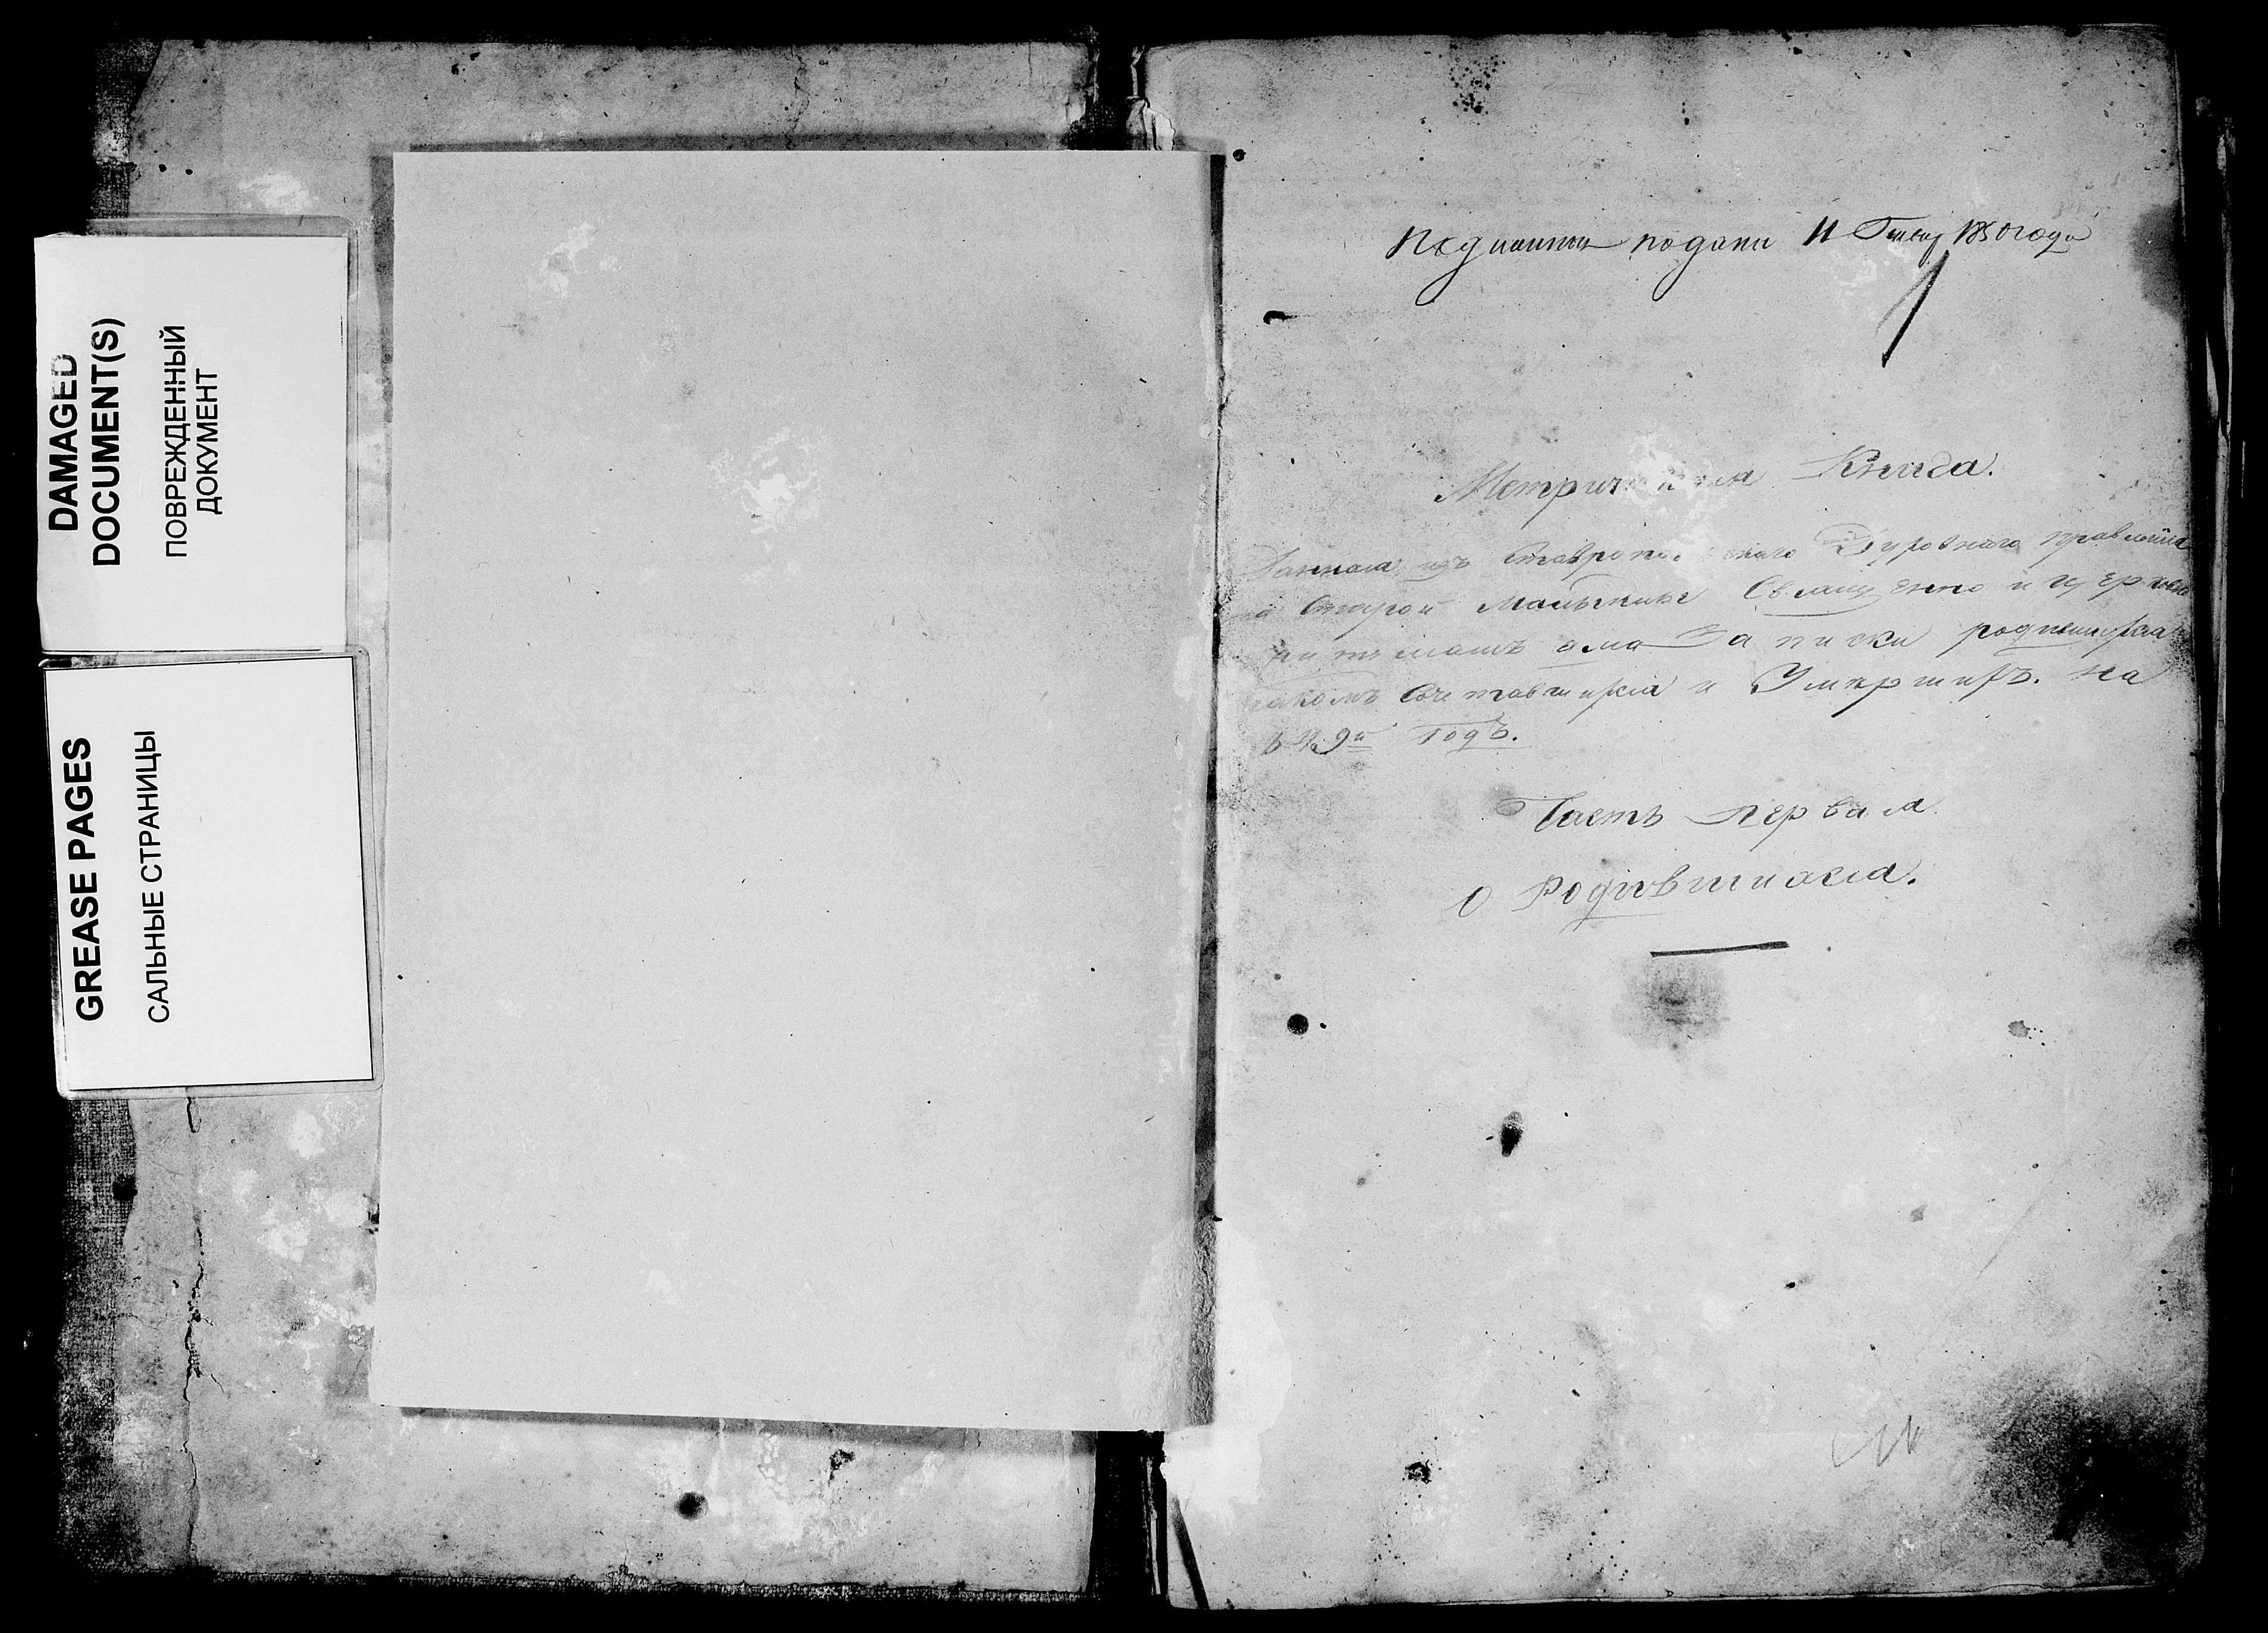 DAMAGED
DOCUMENT(S)
ПОВРЕЖДЕННЫЙ
ДОКУМЕНТ
GREASE PAGES
САЛЬНЫЕ СТРАНИЦЫ
подани 11 Генвар 1850 года
Метрич Книга.
Данная изъ Ставропол скаго Духовнаго правленія
Старой Малыклы Священно и церковно
для записки родившихся
Сочетавшихся и Умершихъ. на
49й Годъ.
Часть первая
О Родившихся.